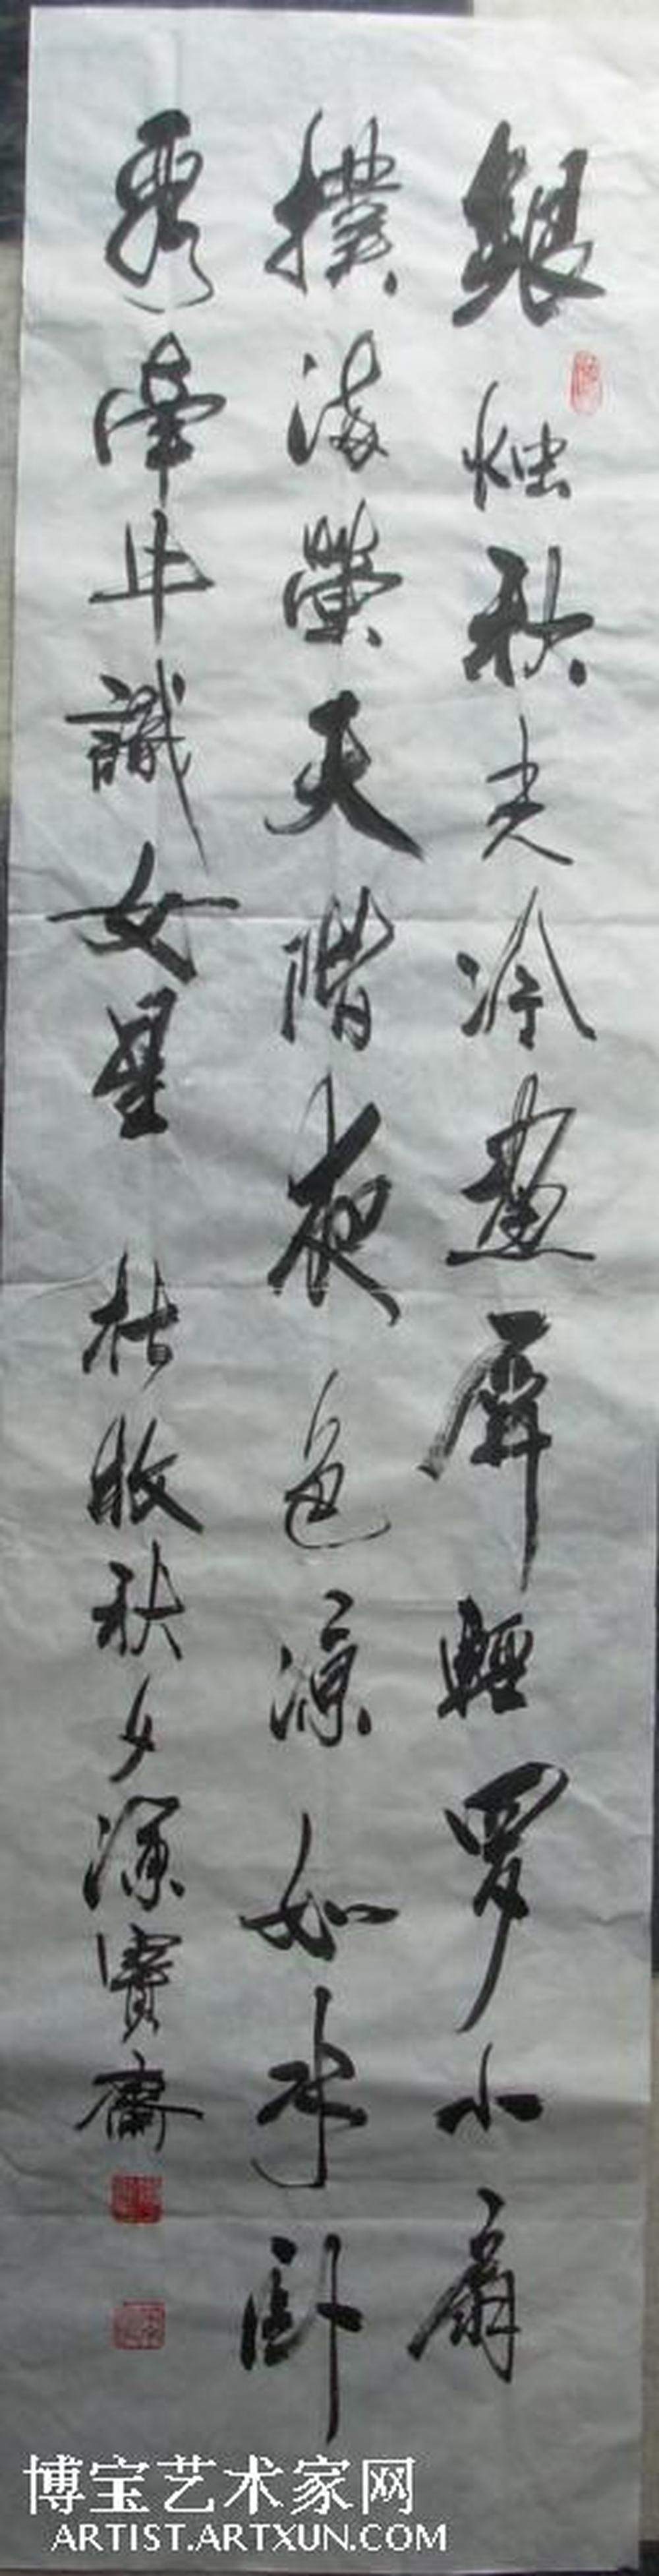 銀烛秋光冷畫屏輕罗小扇
撲流螢天階夜色涼如水卧
看牽牛識女星 杜牧秋夕 寶齋
博宝艺术家网
ARTIST.ARTXUN.COM